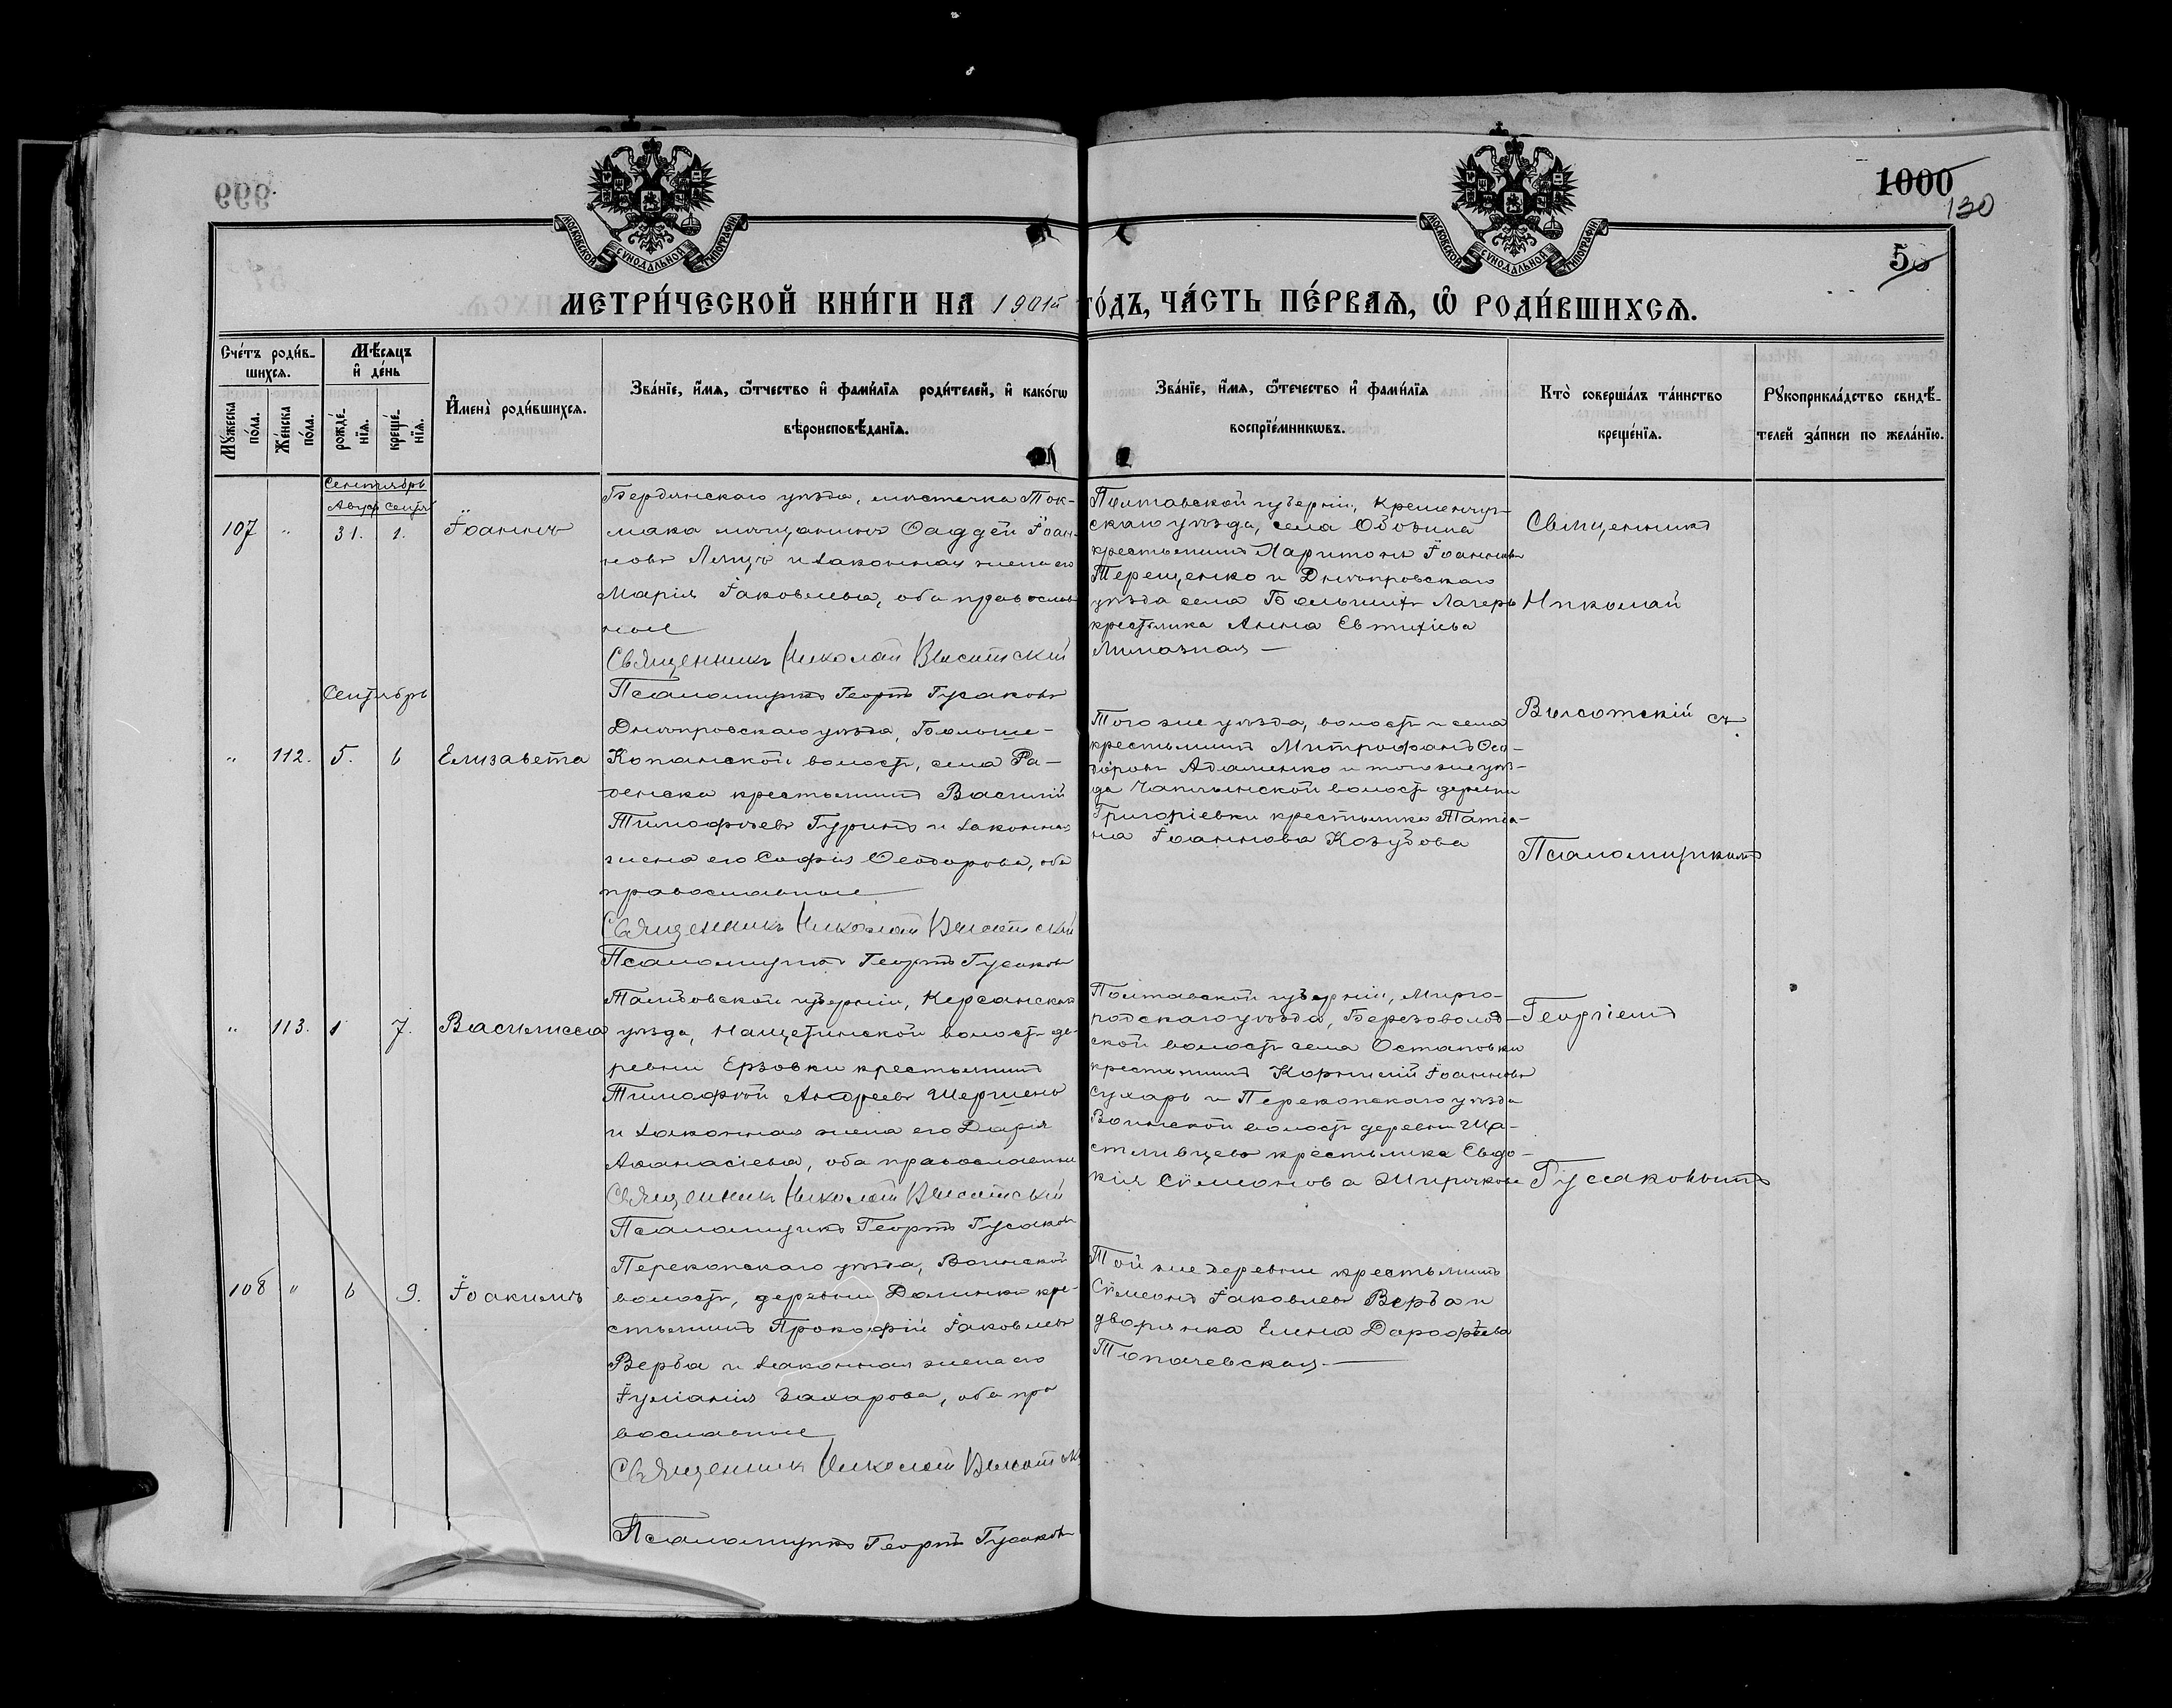 1000
130
50
МОСКОВСКОЙ СѴНОДАЛЬНОЙ ТИПОГРАФІИ
МОСКОВСКОЙ СѴНОДАЛЬНОЙ ТИПОГРАФІИ
МЕТРИ́ЧЕСКОЙ КНИ́ГИ НА 1901й ГО́ДЪ, ЧА́СТЬ ПЕ́РВАѦ, Ѿ РОДИ́ВШИХСѦ.
Сче́тъ роди́в-
шихсѧ.
Мѣ́сѧцъ
и҆ де́нь
Мꙋ́жеска
по́ла.
Же́нска
по́ла.
рожде́-
нїѧ.
креще́-
нїѧ.
И҆мена̀ роди́вшихсѧ.
Зва́нїе, и҆́мѧ, ѻ҆́тчество и҆ фами́лїѧ роди́телей, и҆ како́гѡ
вѣроисповѣ́данїѧ.
Зва́нїе, и҆́мѧ, ѻ҆́течество и҆ фами́лїѧ
воспрїе́мникѡвъ.
Кто̀ соверша́лъ та́инство
креще́нїѧ.
Рꙋкоприкла́дство свидѣ́-
телей за́писи по жела́нїю.
Сентябрь
Авгус Сентя
107 " 31. 1. Іоаннъ
Бердянскаго уѣзда, мѣстечка Ток-
мака мѣщанинъ Ѳаддей Іоан-
новъ и законная жена его
Марія Іаковлева, оба православ
ные
Священникъ Николай Высотскій
Псаломщикъ Георгій Гусаковъ
Полтавской губерніи, Кременчуг-
скаго уѣзда, села
крестьянинъ Харитонъ Іоанновъ
Терещенко и Днѣпровскаго
уѣзда села Большихъ Лагерь
крестьянка Анна Евтихіева
Священникъ
Николай
Высотскій съ
Псаломщикомъ
Георгіемъ
Гусаковымъ
Сентябрь
" 112. 5. 6 Елизавета
Днѣпровскаго уѣзда, Больше-
Копанской волости, села Ра-
денска крестьянинъ Василій
Тимоѳеевъ Гуринъ и законная
жена его Софія Ѳеодорова, оба
православные
Священникъ Николай Высотскій
Псаломщикъ Георгій Гусаковъ
Того же уѣзда, волости и села
крестьянинъ Митрофанъ Ѳео-
доровъ Адаменко и того же уѣз-
да Чаплынской волости деревни
Григоріевки крестьянка Татiа-
на Іоаннова Козубова
" 113. 1 7. Василисса
Тамбовской губерніи, Кирсанскаго
уѣзда, волости де-
ревни Ерзовки крестьянинъ
Тимофей Андреевъ
и законная жена его Дарія
Аѳанасіева, оба православные
Священникъ Николай Высотскій
Псаломщикъ Георгій Гусаковъ
Полтавской губерніи, Мирго-
родскаго уѣзда,
ской волости села Остаповки
крестьянинъ Корнилій Іоанновъ
Сухарь и Перекопскаго уѣзда
Воинской волости деревни Ща-
стливцево крестьянка Евдо-
кія Сѵмеонова
108 " 6 9. Іоакимъ
Перекопскаго уѣзда, Воинской
волости, деревни Долинки кре-
стьянинъ Прокофій Іаковлевъ
Верба и законная жена его
Іуліанія Захарова, оба пра
вославные
Священникъ Николай Высотскій
Псаломщикъ Георгій Гусаковъ
Той же деревни крестьянинъ
Сѵмеонъ Іаковлевъ Верба и
дворянка Елена Дорофеева